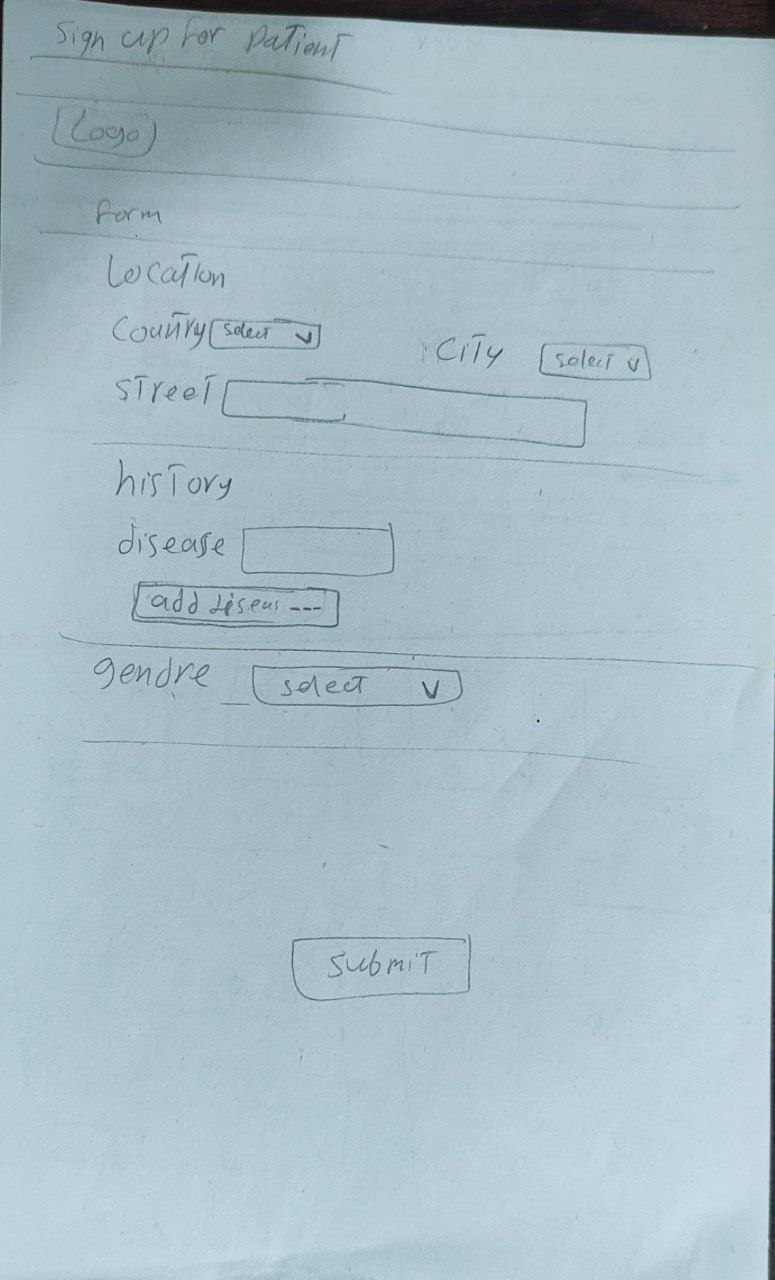 Sign up for patient
Logo
Form
Location
Country select v City select v
Street
history
disease
add diseas ---
gendre select v
submit